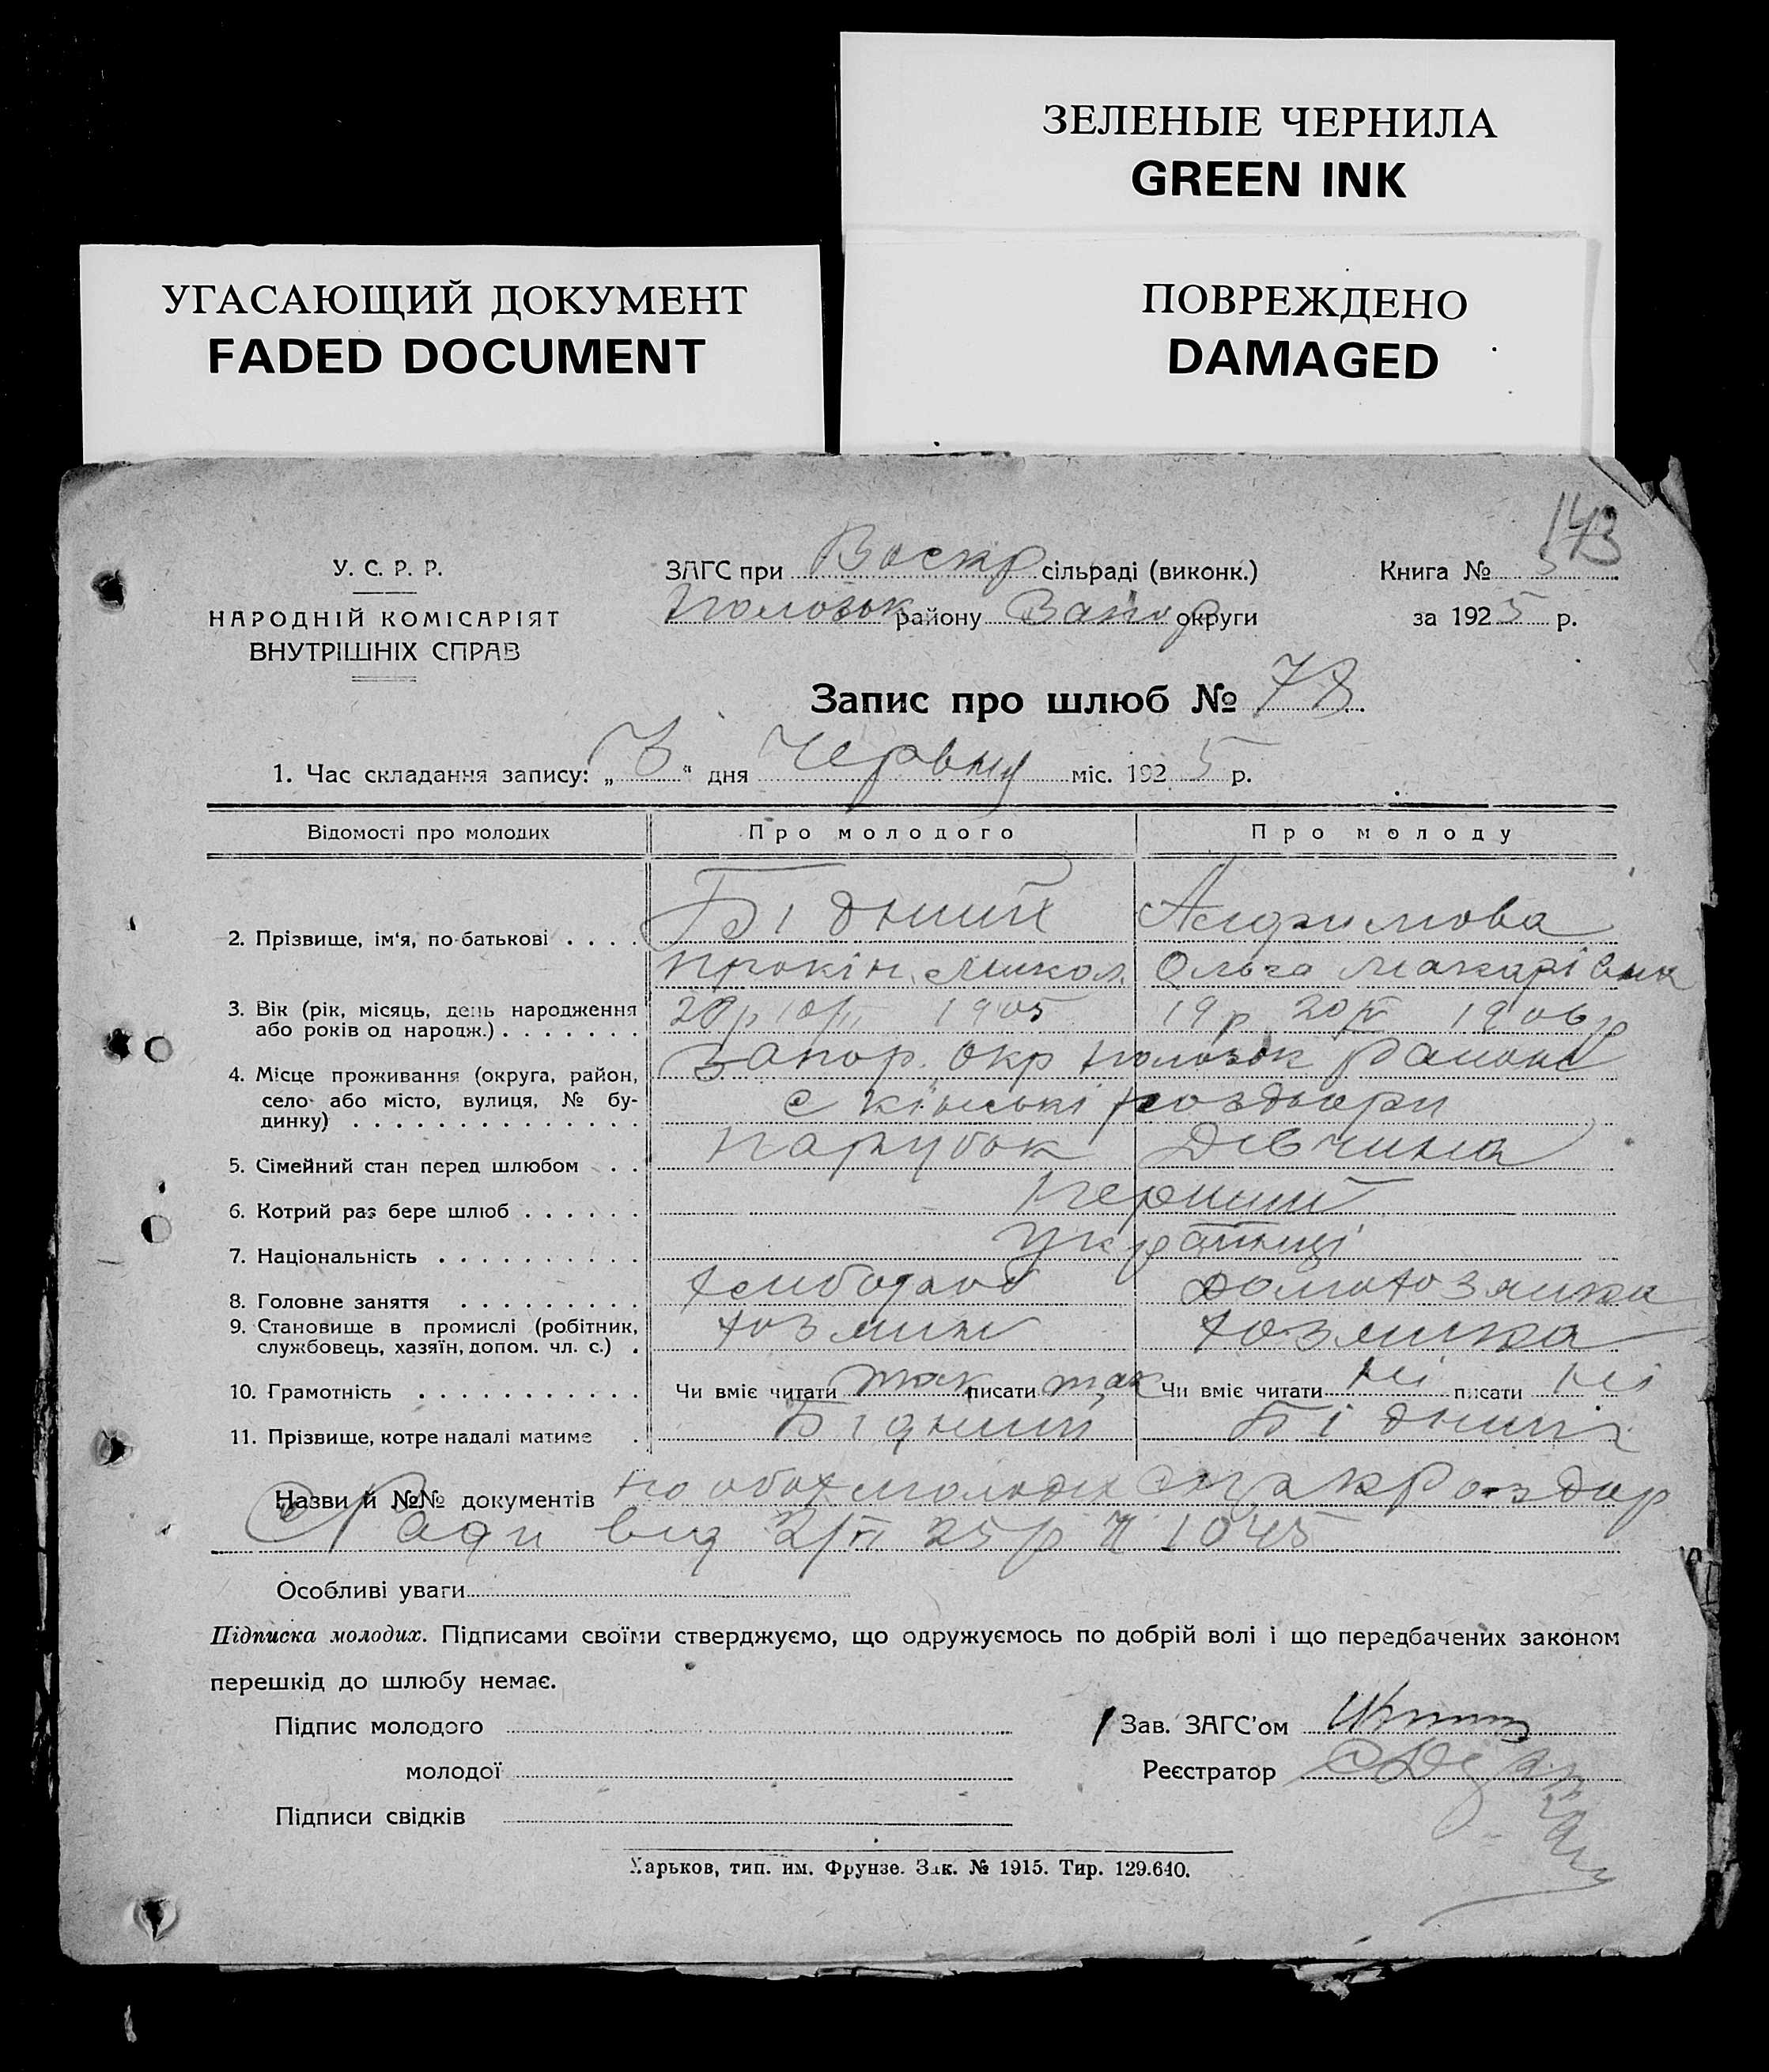 ЗЕЛЕНЫЕ ЧЕРНИЛА
GREEN INK
УГАСАЮЩИЙ ДОКУМЕНТ
FADED DOCUMENT
ПОВРЕЖДЕНО
DAMAGED
143
У. С. Р. Р.
НАРОДНІЙ КОМІСАРІЯТ
ВНУТРІШНІХ СПРАВ
ЗАГС при Воскр сільраді (виконк.)
Пологовськ району Запор округи
Книга № 3
за 1925 р.
Запис про шлюб № 78
1. Час складання запису: „3“ дня Червня міс. 1925 р.
Відомості про молодих Про молодого Про молоду
2. Прізвище, ім'я, по-батькові . . . . Бідний
Прокіп Микол. Ольга Макарівна
3. Вік (рік, місяць, день народження
або років од народж.) . . . . . . . 1905 19 р 20/IV 1906 р
4. Місце проживання (округа, район,
село або місто, вулиця, № бу-
динку) . . . . . . . . . . . . . . Запор. Окр района
с кінські роздори
5. Сімейний стан перед шлюбом . . Парубок Дівчина
6. Котрий раз бере шлюб . . . . . . Перший
7. Національність . . . . . . . . . . Українці
8. Головне заняття . . . . . . . . . хлібороб домохозяйка
9. Становище в промислі (робітник,
службовець, хазяїн, допом. чл. с.) . хозяин хозяйка
10. Грамотність . . . . . . . . . . . Чи вміє читати так писати так Чи вміє читати ні писати ні
11. Прізвище, котре надалі матиме . Бідний Бідний
Назви й №№ документів по обох молодих Роздор
С/Ради від 2/VI 25 р № 1045
Особливі уваги
Підписка молодих. Підписами своїми стверджуємо, що одружуємось по добрій волі і що передбачених законом
перешкід до шлюбу немає.
Підпис молодого
молодої
Підписи свідків
Зав. ЗАГС'ом
Реєстратор
Харьков, тип. им. Фрунзе. Зак. № 1915. Тир. 129.640.